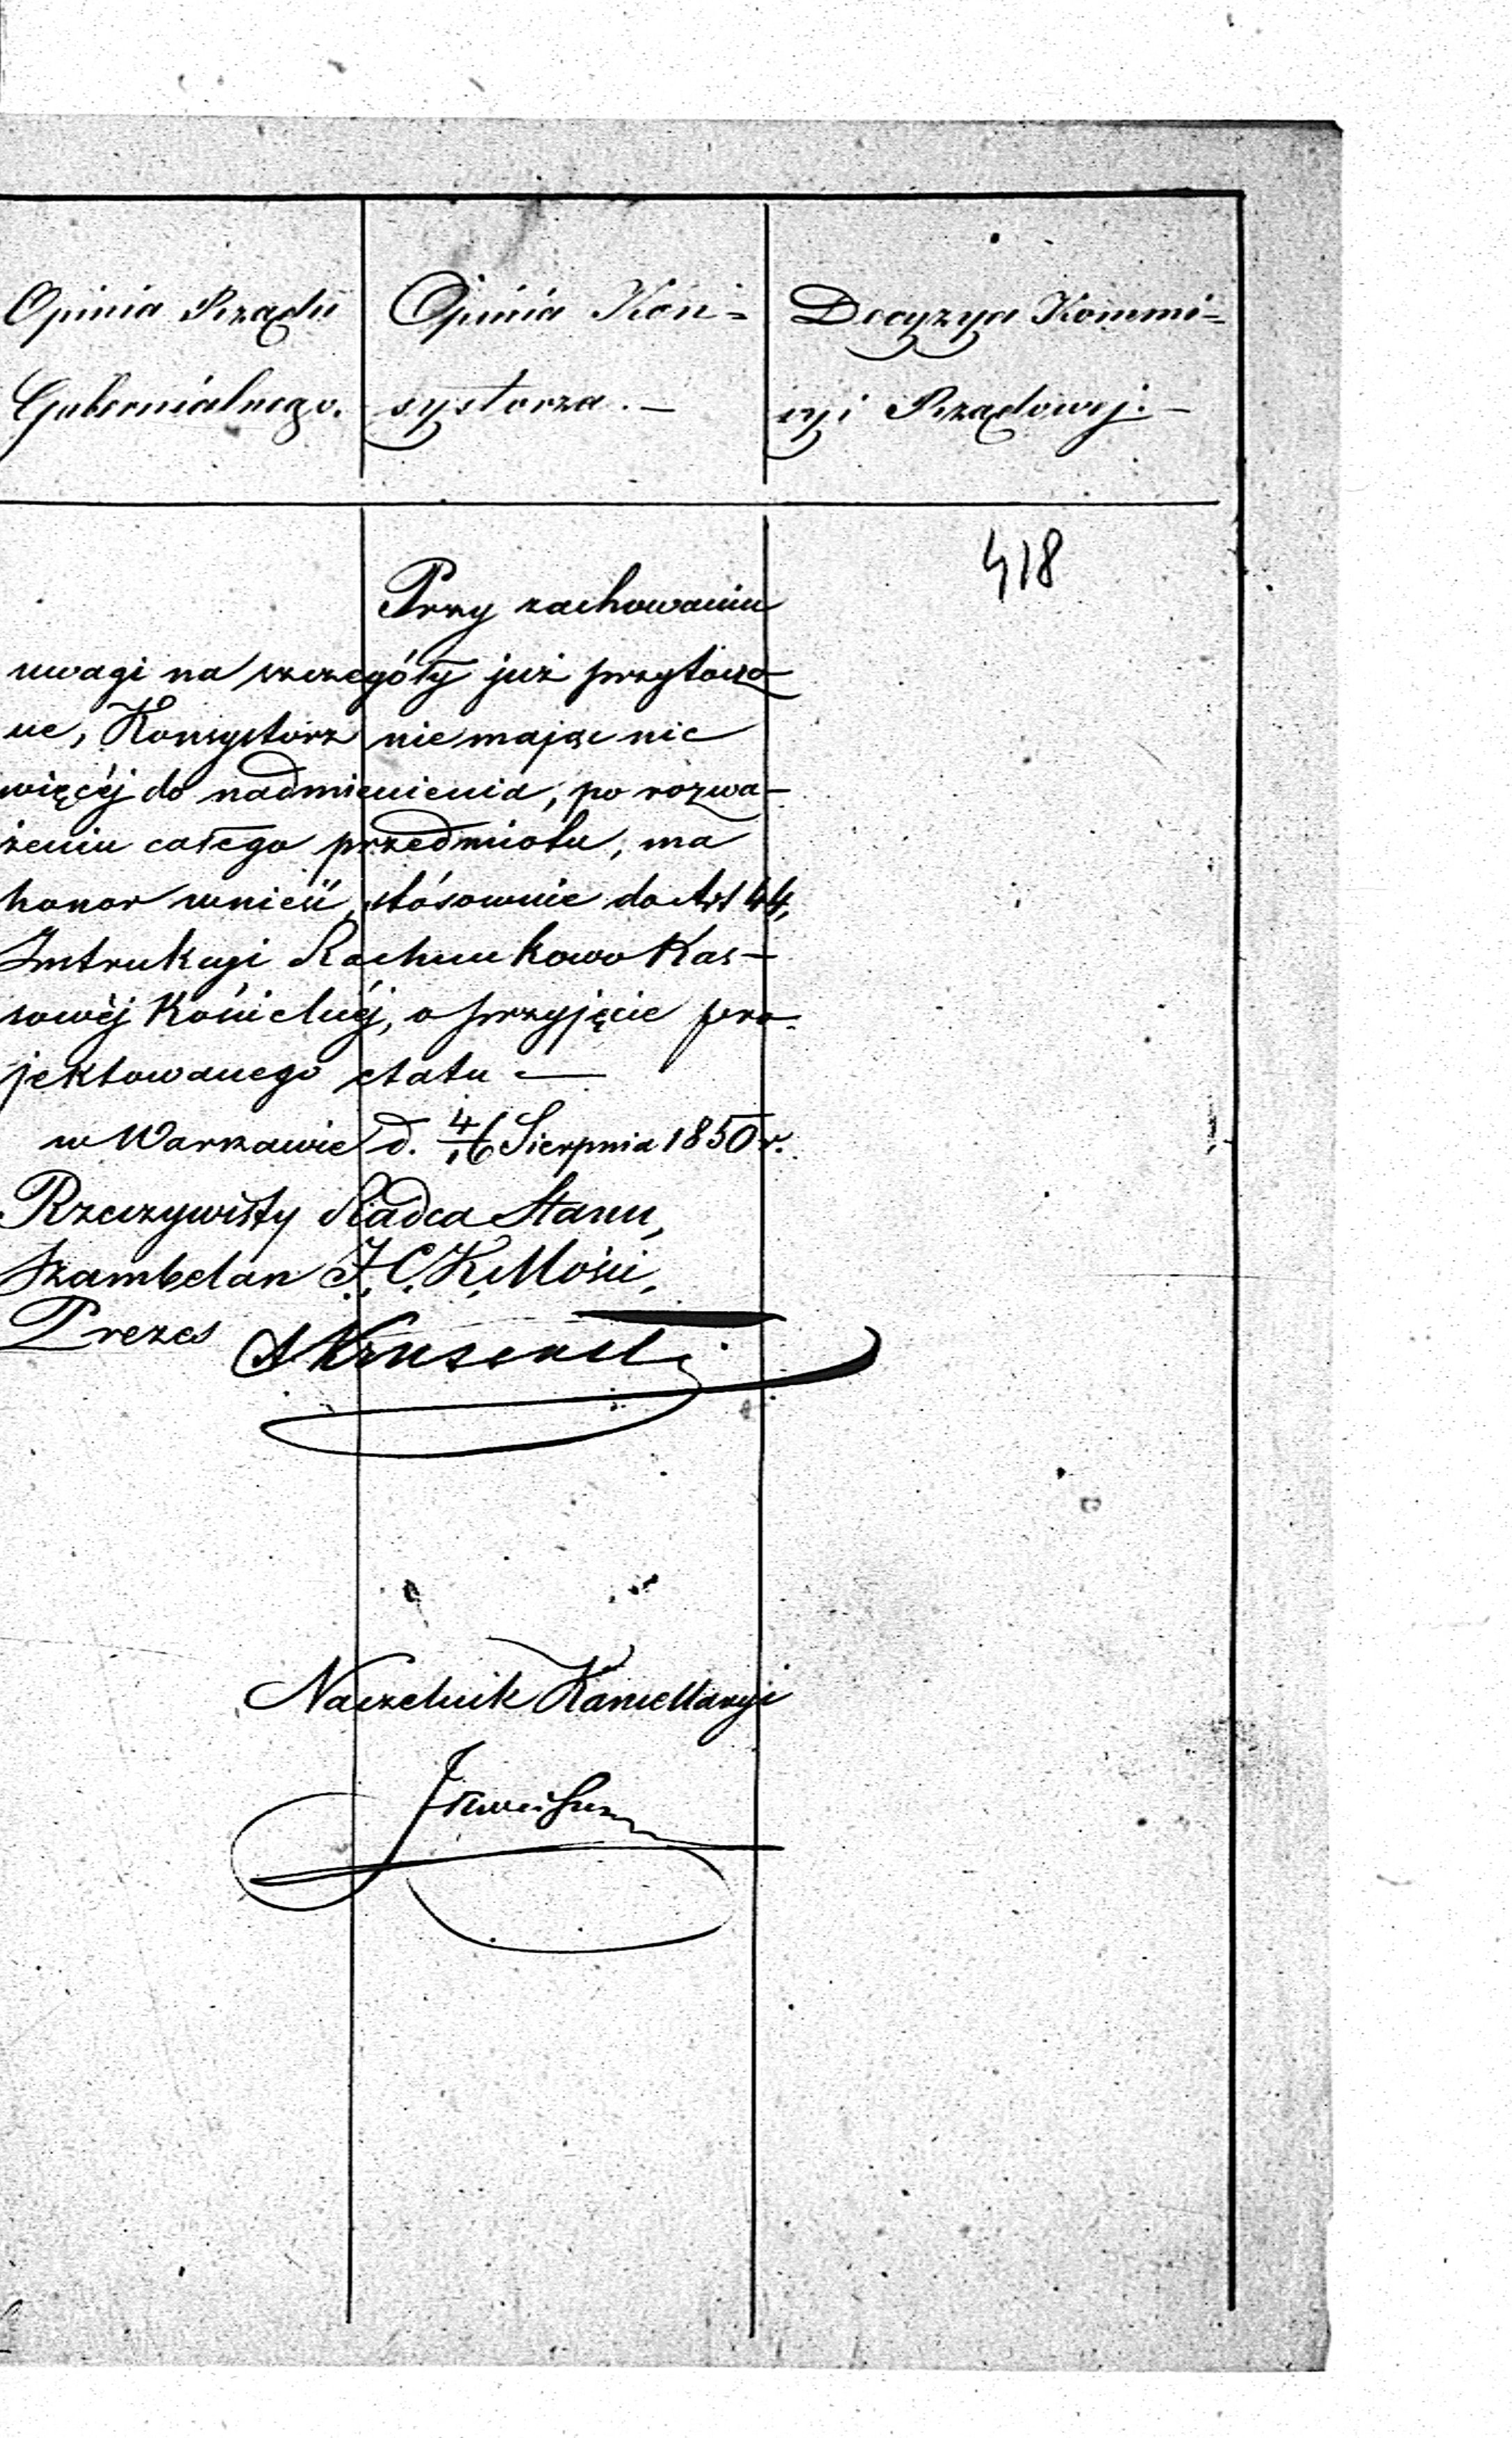 Opinia Rządu
Gubernialnego.
Opinia Kon=
systorza. —
Decyzya Kommi=
syi Rządowej. —
418
Przy zachowaniu
uwagi na szczegóły już przytoczo-
ne, Konsystorz nie mając nic
więcéj do nadmienienia, po rozwa-
żeniu całego przedmiotu, ma
honor wnieść, stósownie do Art 44,
Instrukcyi Rachunkowo Kas-
sowéj Kościelnéj, o przyjęcie pro-
jektowanego etatu —
w Warszawie d. 4/16 Sierpnia 1850 r.
Rzeczywisty Radca Stanu,
Szambelan J. C. K. Mości,
Prezes
Naczelnik Kancellaryi